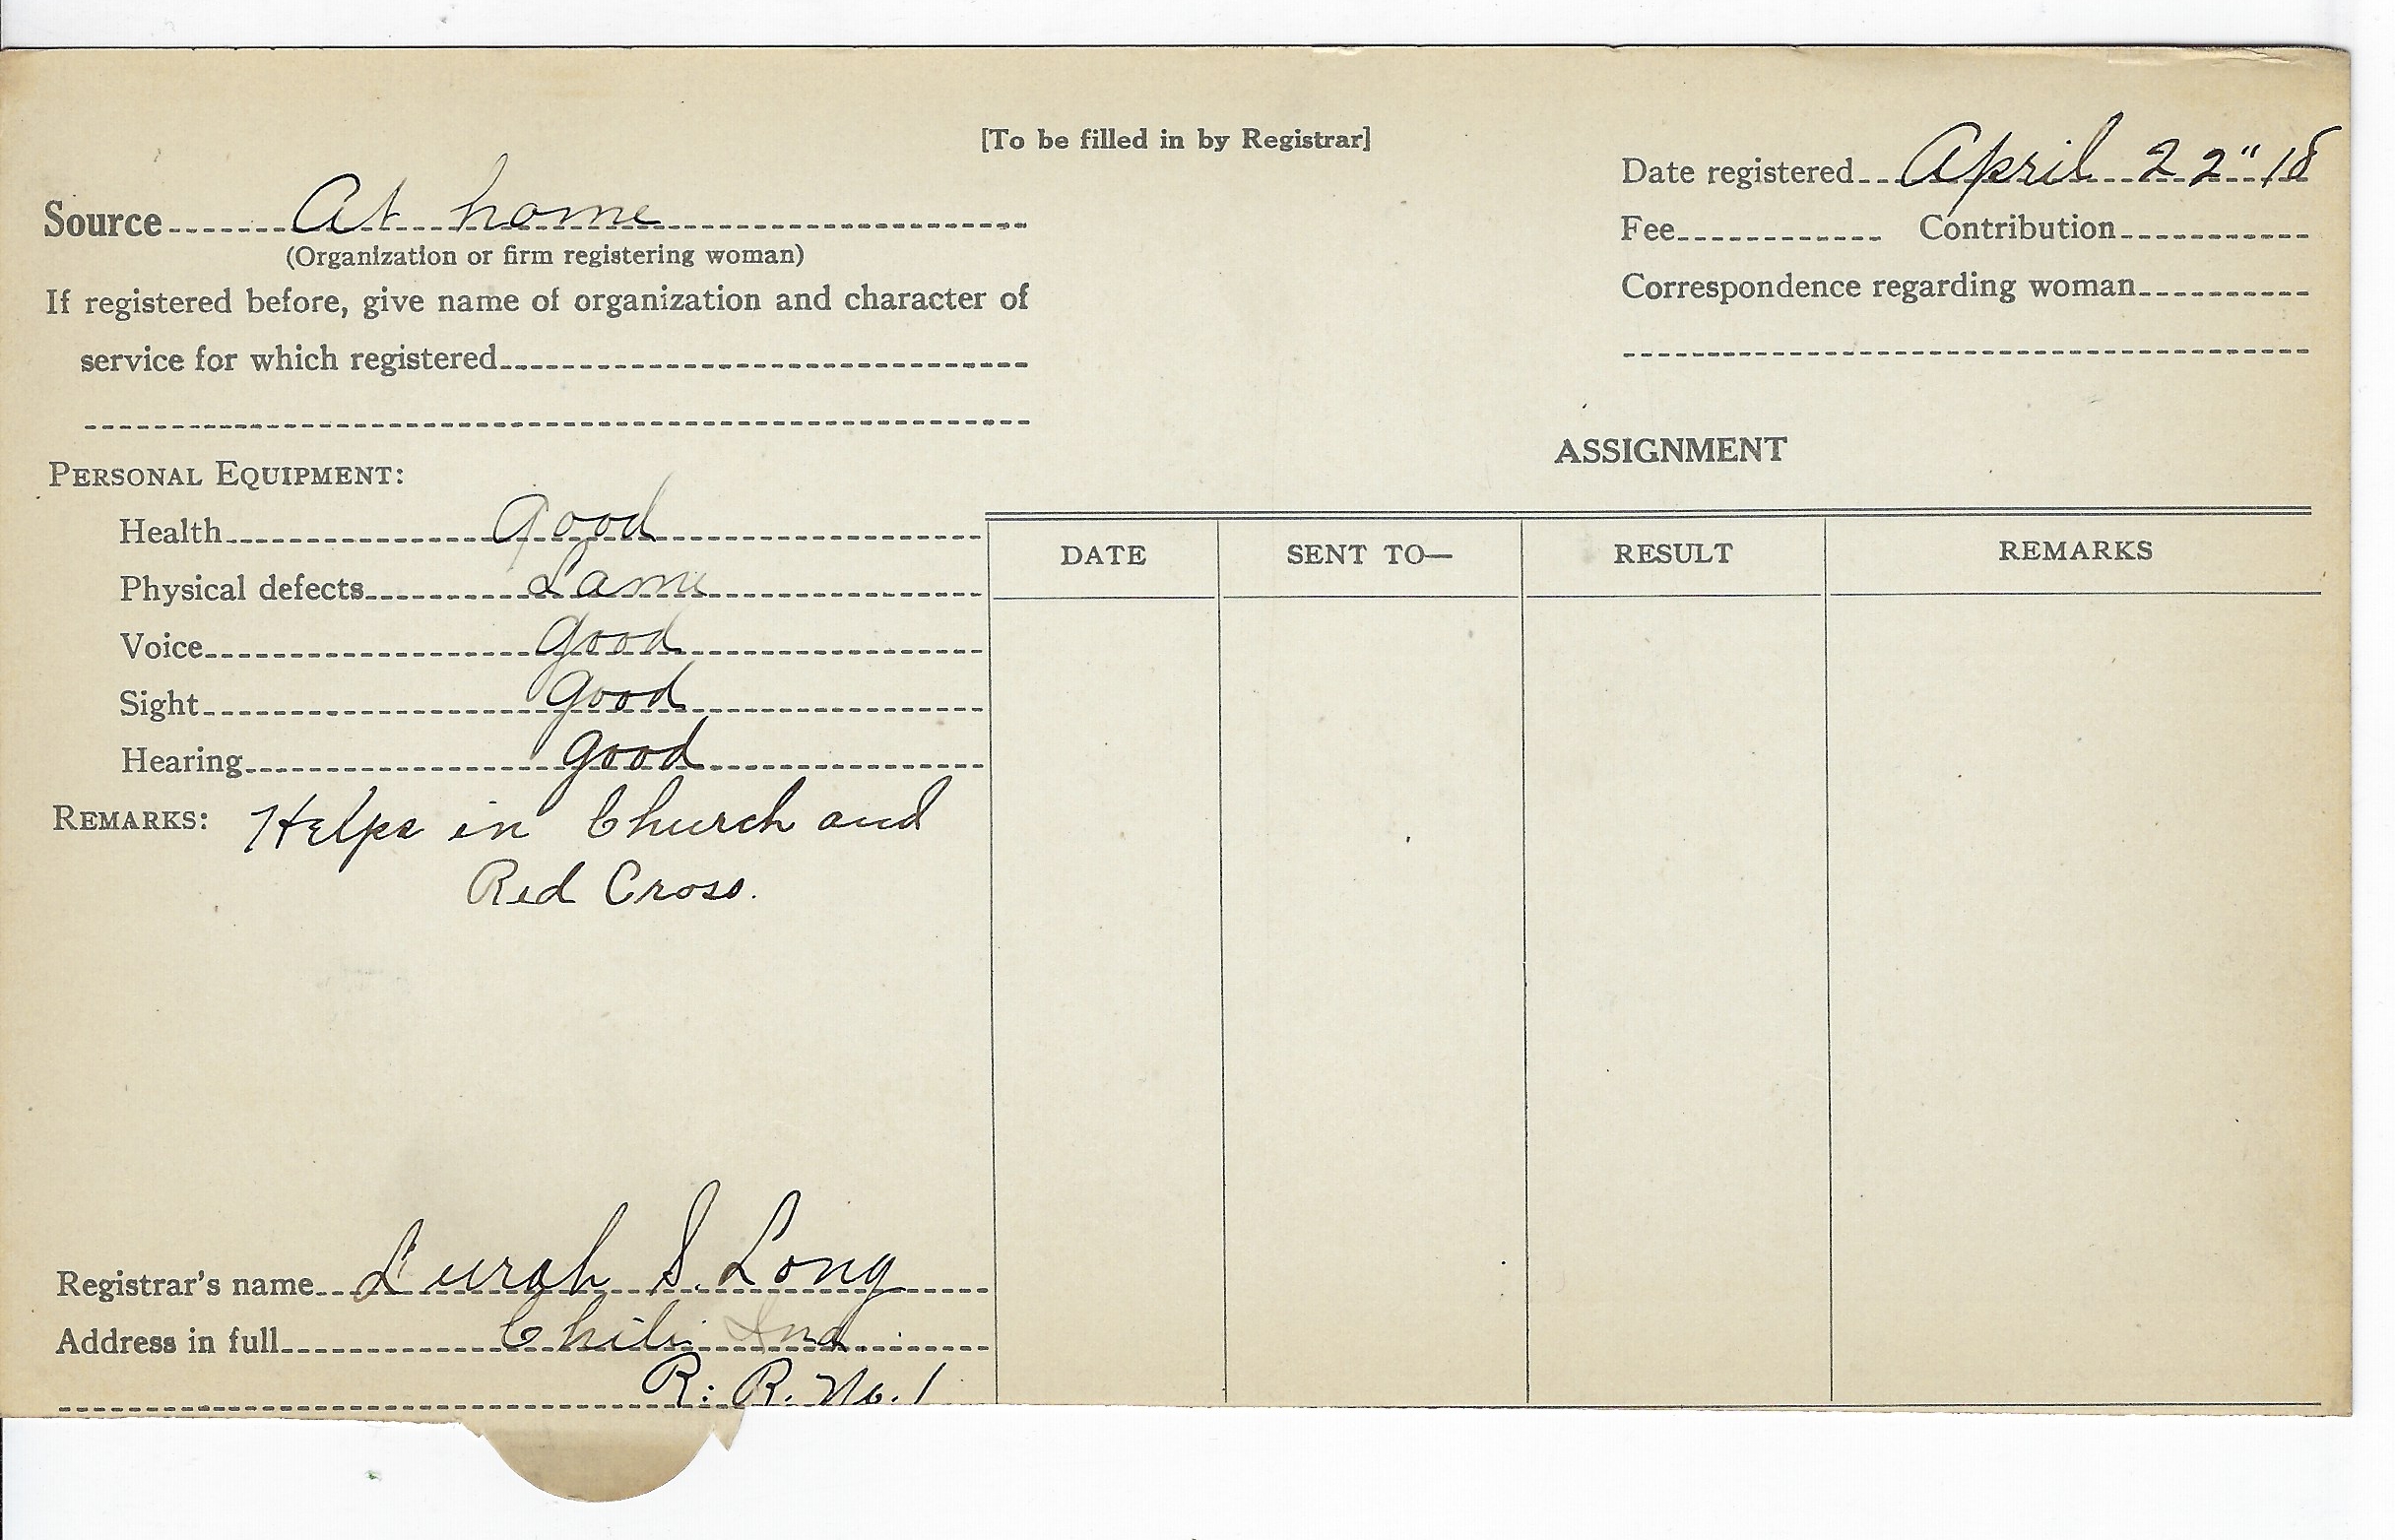 [To be filled in by Registrar]
Date registered April 22" 18
Source At home
(Organization or firm registering woman)
Fee Contribution
If registered before, give name of organization and character of
Correspondence regarding woman
service for which registered
ASSIGNMENT
PERSONAL EQUIPMENT:
Health good
Physical defects Lame
Voice good
Sight good
Hearing good
DATE SENT TO— RESULT REMARKS
REMARKS: Helps in Church and
Red Cross.
Registrar's name Lurah S. Long
Address in full Chili Ind.
R. R. No. 1